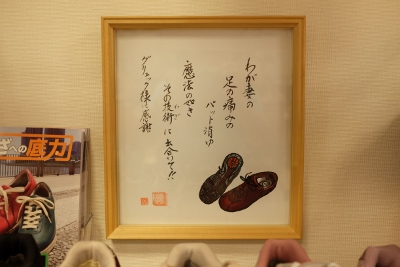 わが妻の
足の痛みの
パット消ゆ
魔法の如き
その技術に出会いて!!
グリュック様に感謝
ざへの底力